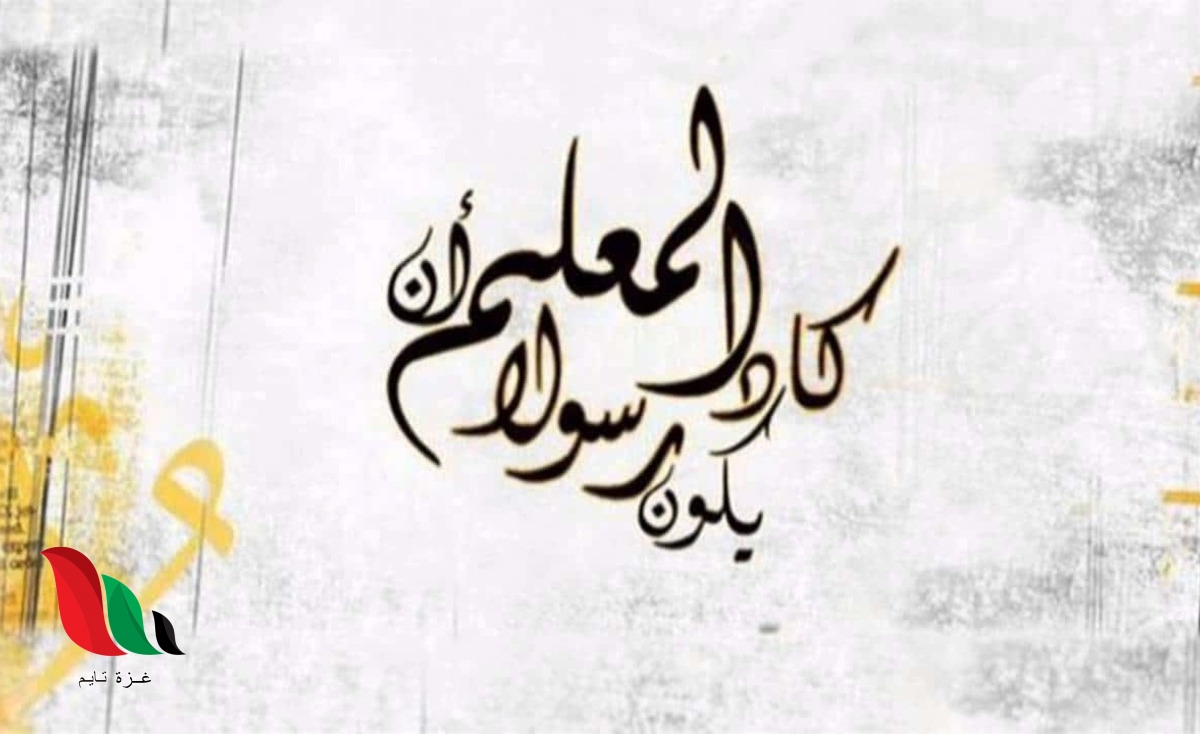 كاد المعلم أن
يكون رسولا
غزة تايم